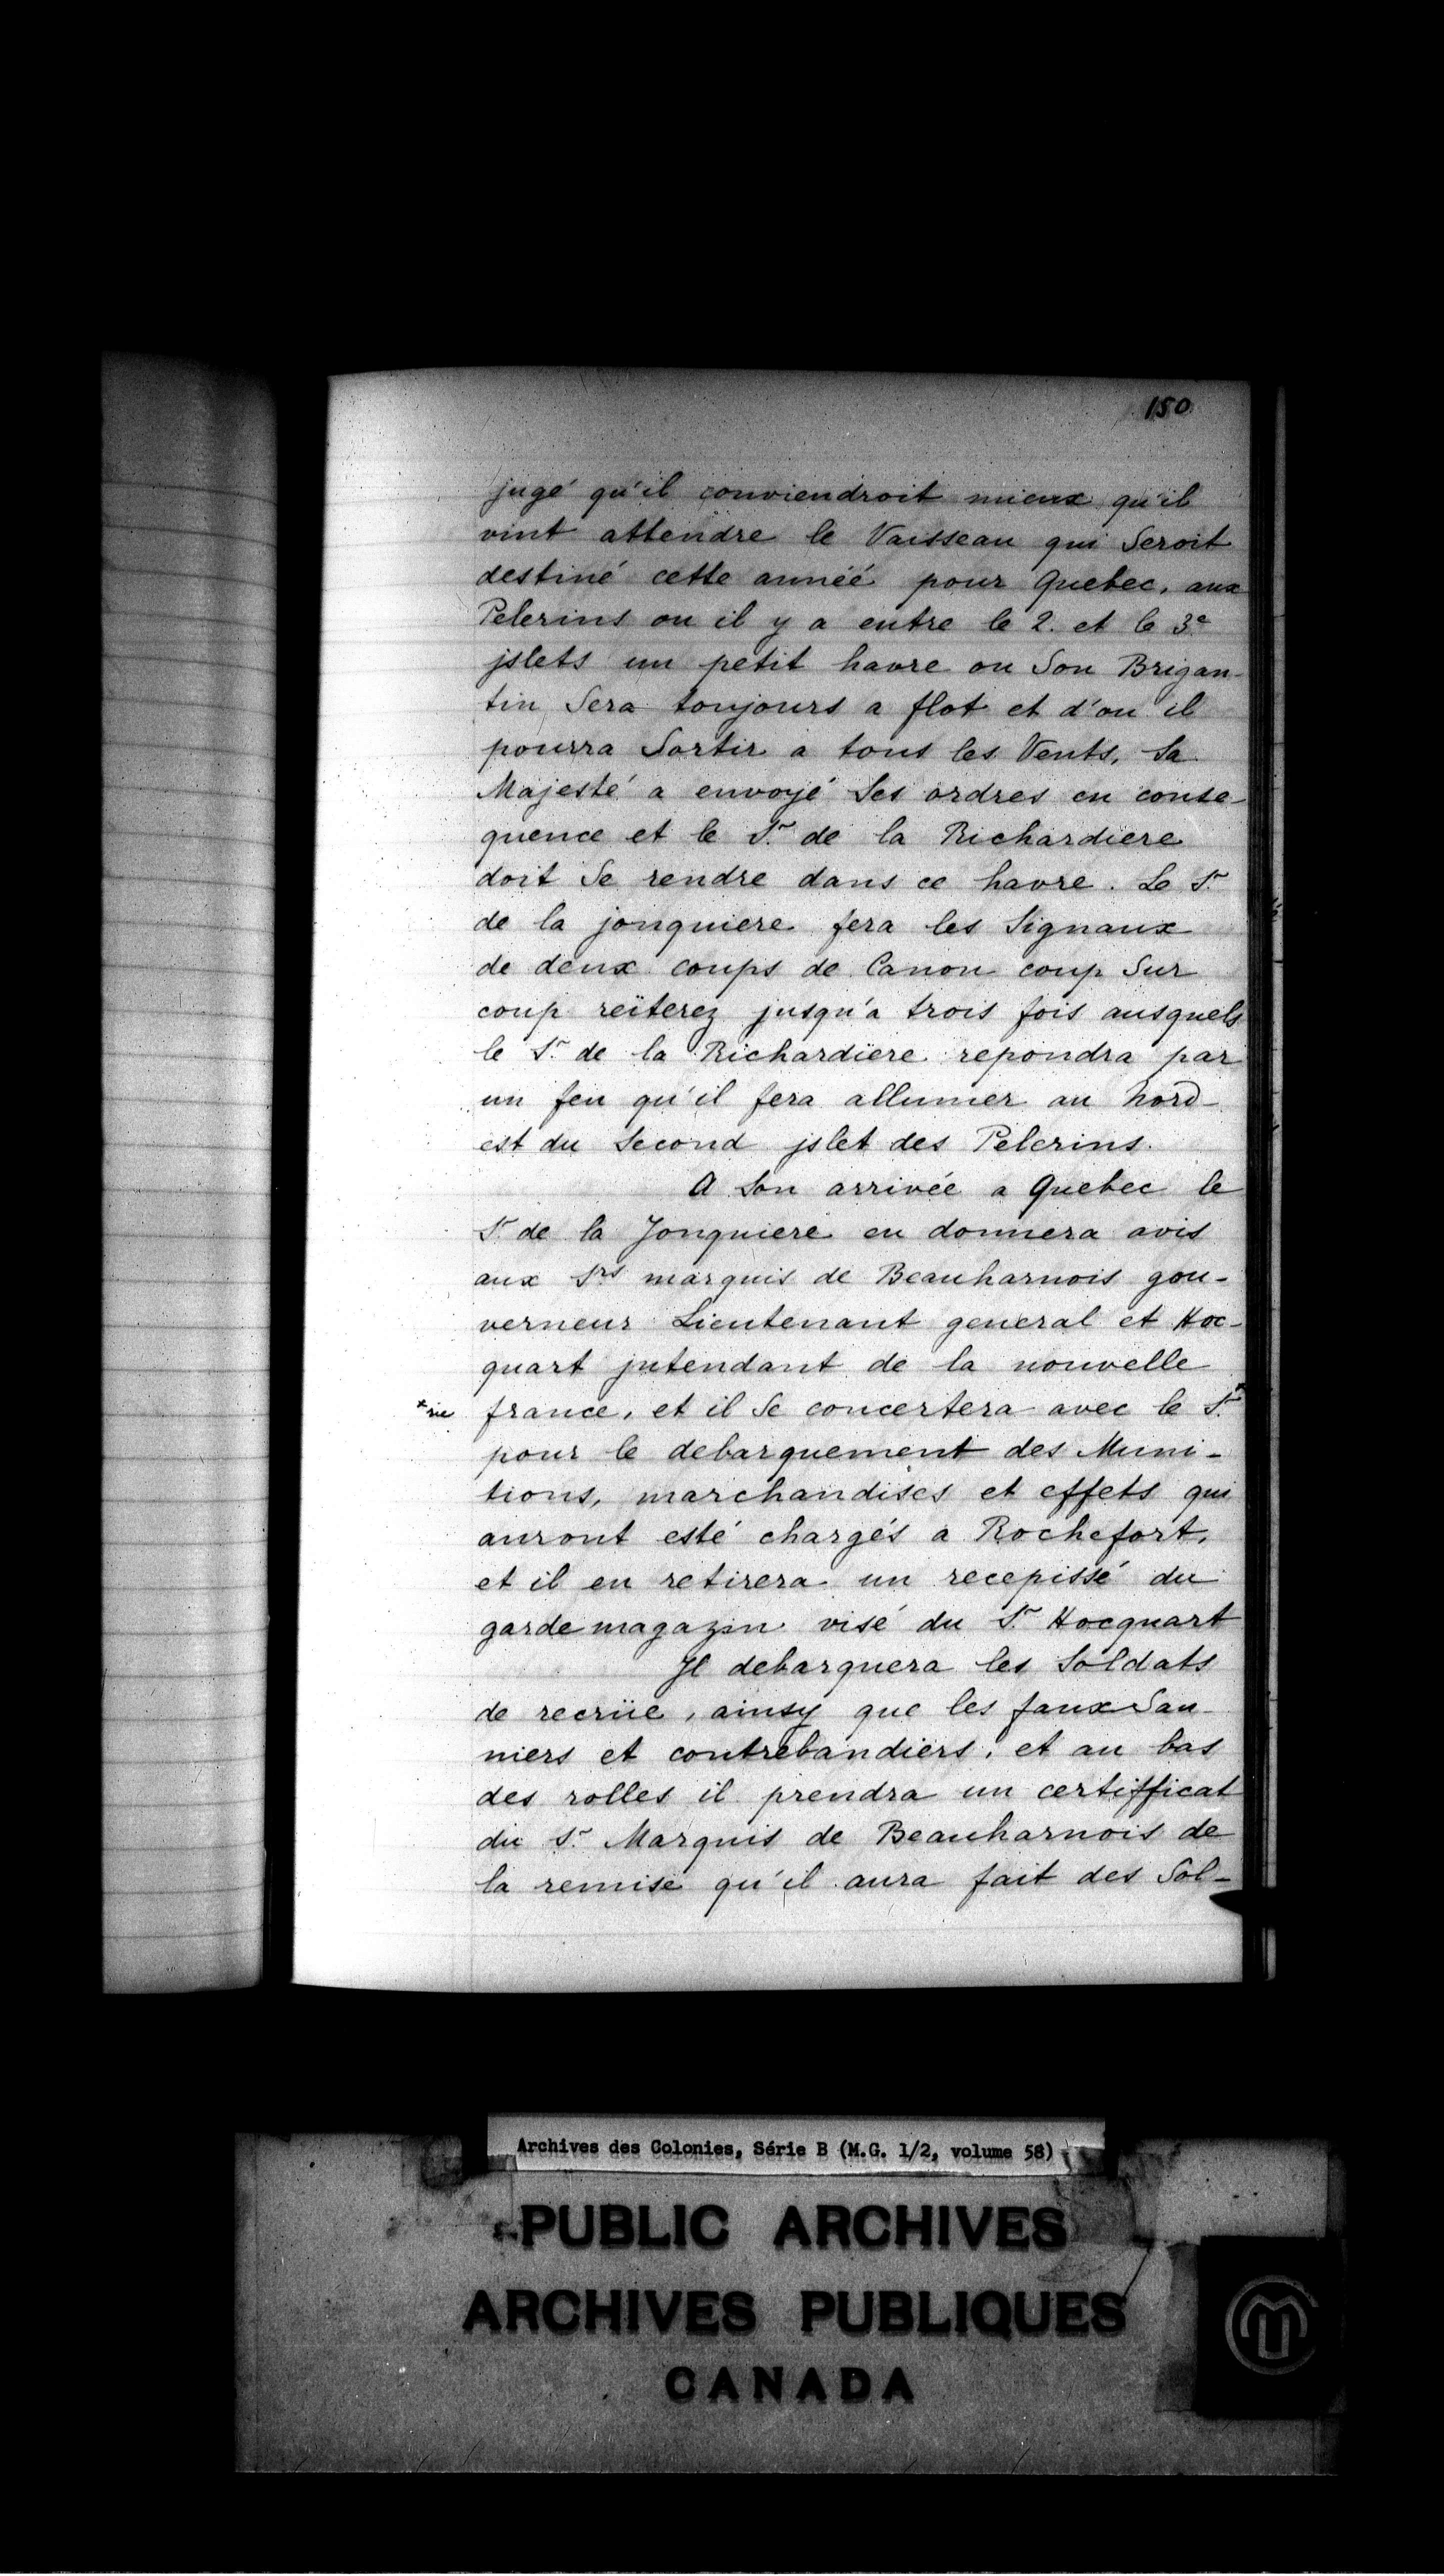 150
jugé qu'il conviendroit mieux qu'il
vint attendre le Vaisseau qui Seroit
destiné cette annéé pour Quebec, aux
Pelerins ou il y a entre le 2. et le 3e
jslets un petit havre ou Son Brigan-
tin Sera toujours a flot et d'ou il
pourra Sortir a tous les Vents, Sa
Majesté a envoyé Ses ordres en conse-
quence et le Sr. de la Richardiere
doit Se rendre dans ce havre. Le Sr.
de la jonquiere fera les Signaux
de deux coups de Canon coup Sur
coup reïterez jusqu'a trois fois ausquels
le Sr. de la Richardiere repondra par
un feu qu'il fera allumer au nord-
est du Second jslet des Pelerins.
A Son arrivée a Quebec le
Sr. de la Jonquiere en donnera avis
aux Srs marquis de Beauharnois gou-
verneur Lieutenant general et Hoc-
quart jntendant de la nouvelle
*sic france, et il Se concertera avec le Sr.*
pour le debarquement des Muni-
tions, marchandises et effets qui
auront esté chargés a Rochefort,
et il en retirera un recepissé du
garde magazin visé du Sr. Hocquart
Jl debarquera les Soldats
de recrüe, ainsy que les faux Sau-
niers et contrebandiers, et au bas
des rolles il prendra un certifficat
du Sr. Marquis de Beauharnois de
la remise qu'il aura fait des Sol-
Archives des Colonies, Série B (M.G. 1/2, volume 58)
PUBLIC ARCHIVES
ARCHIVES PUBLIQUES
CANADA